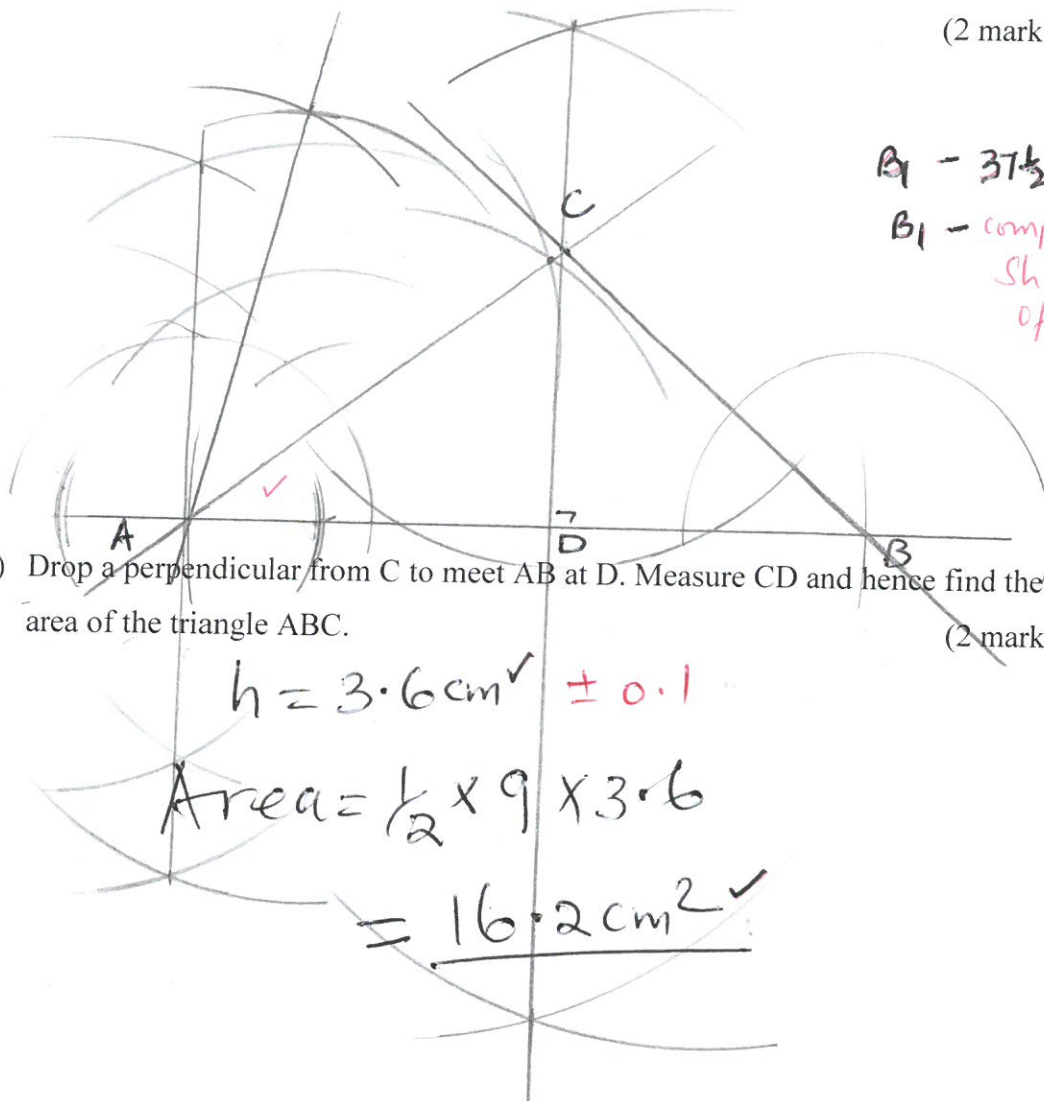 (2 mark
B1 - 37½
B1 - comp
Sh
of
C
A
D
B
) Drop a perpendicular from C to meet AB at D. Measure CD and hence find the
area of the triangle ABC.
(2 mark
h = 3.6 cm ✓ ± 0.1
Area = ½ × 9 × 3.6
= 16.2 cm² ✓